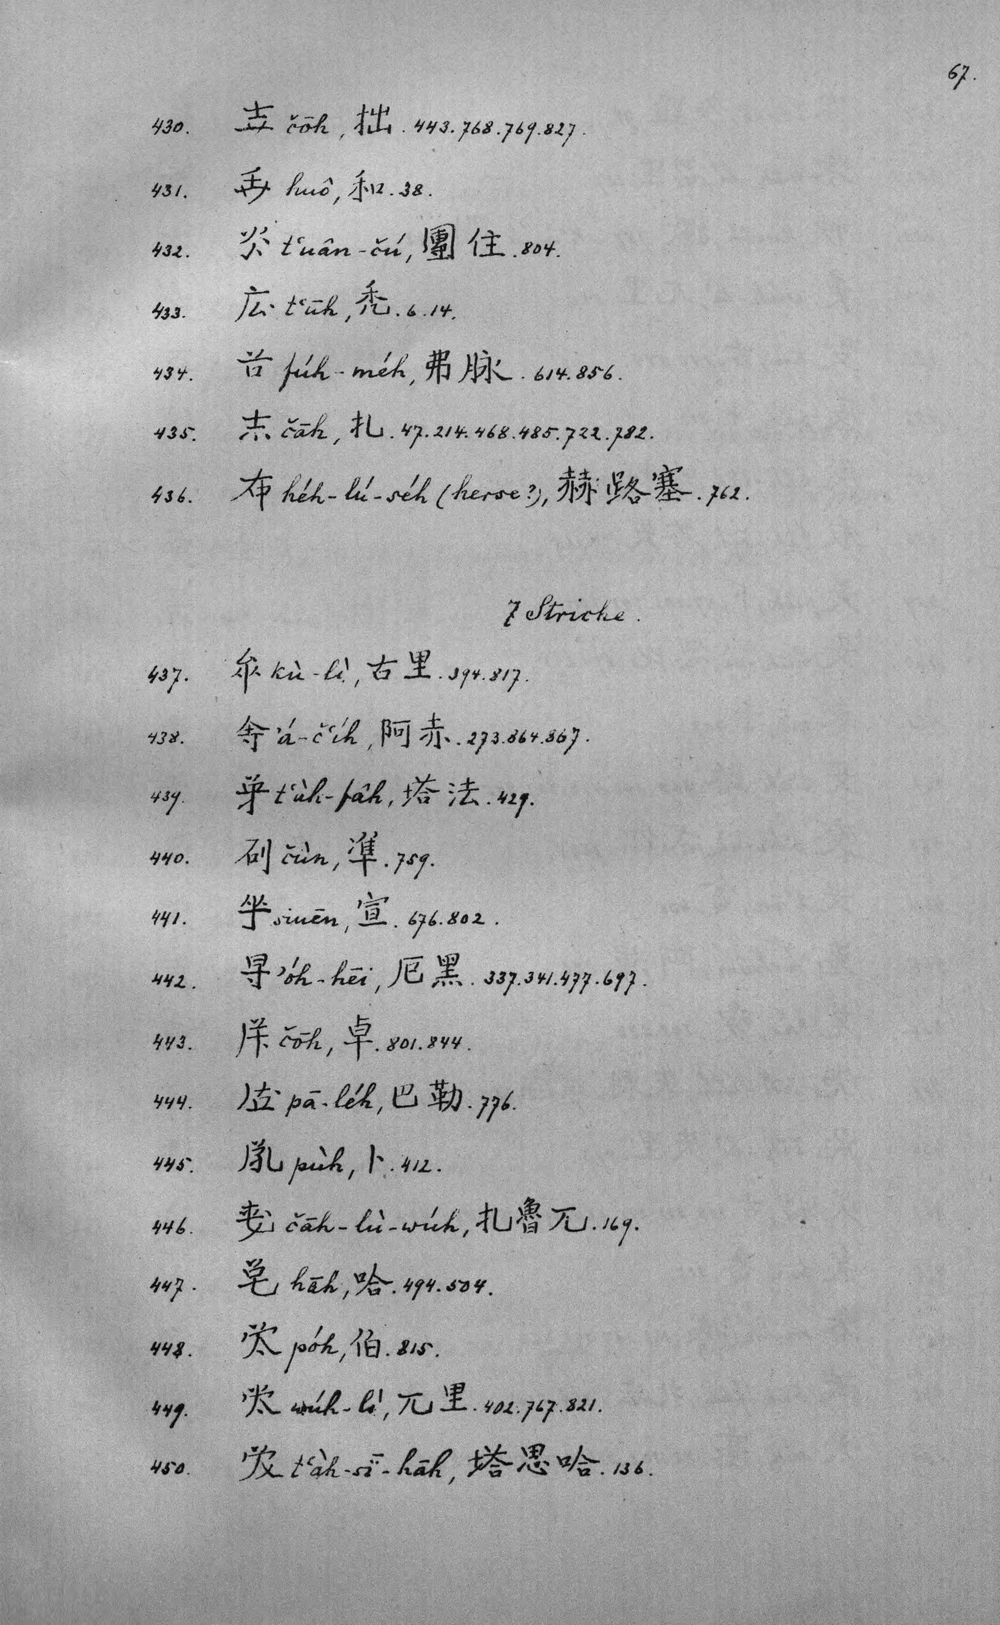 67.
430. čōh, 拙. 443. 768. 769. 827.
431. huô, 和. 38.
432. t‘uân-čú, 團住. 804.
433. t‘ūh, 禿. 6. 14.
434. fúh-méh, 弗脉. 614. 856.
435. čāh, 扎. 47. 214. 468. 485. 722. 782.
436. héh-lú-séh (herse?), 赫路塞. 762.
7 Striche.
437. kù-lì, 古里. 394. 817.
438. ’á-č‘íh, 阿赤. 273. 864. 867.
439. t‘àh-fâh, 塔法. 429.
440. čùn, 準. 759.
441. siuēn, 宣. 676. 802.
442. ’óh-hēi, 厄黑. 337. 341. 477. 697.
443. čōh, 卓. 801. 844.
444. pā-léh, 巴勒. 776.
445. pùh, 卜. 412.
446. čāh-lù-wúh, 扎魯兀. 169.
447. hāh, 哈. 494. 504.
448. póh, 伯. 815.
449. wúh-lì, 兀里. 402. 767. 821.
450. t‘àh-sī-hāh, 塔思哈. 136.